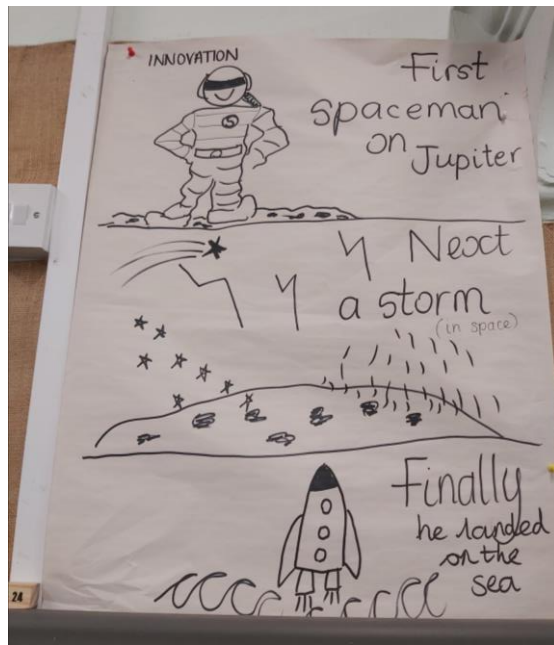 INNOVATION
First
spaceman
on Jupiter
S
Next
a storm
(in space)
Finally
he landed
on the
sea
24